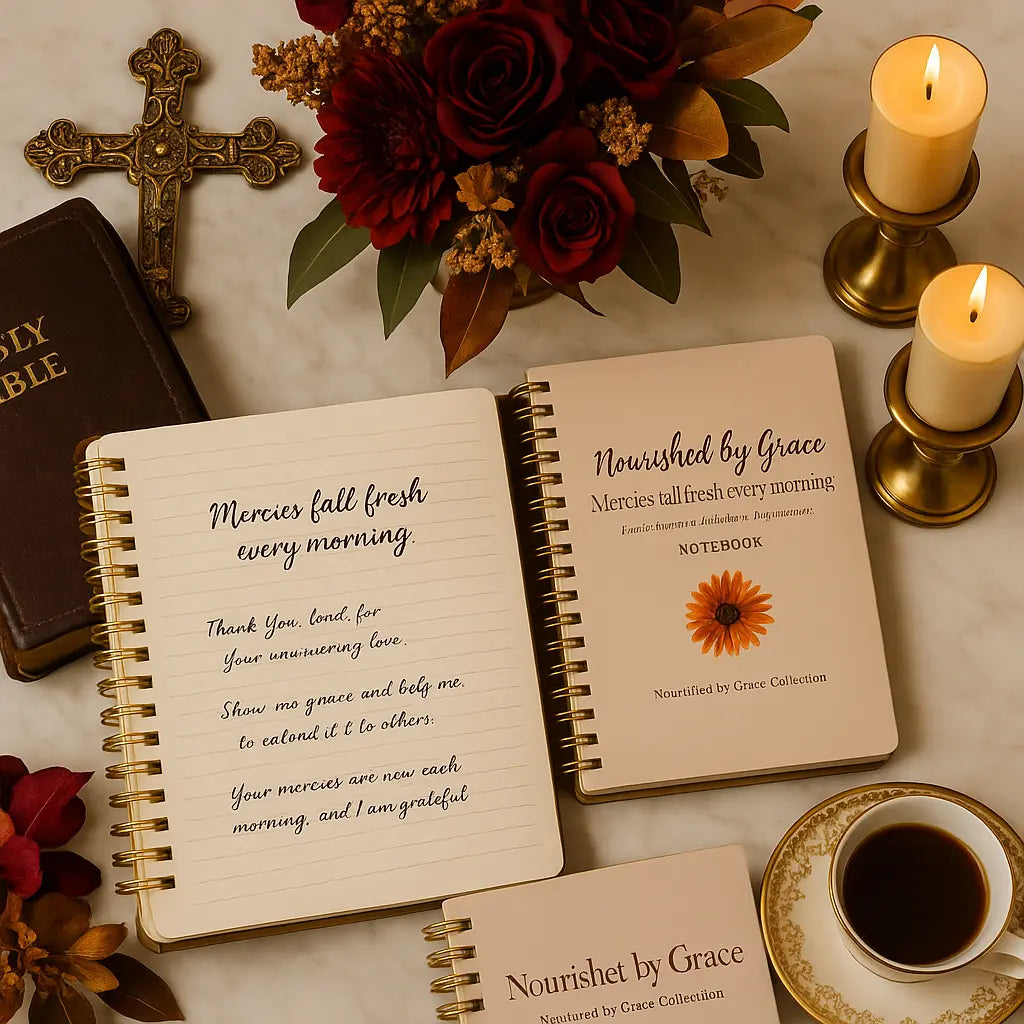 SLY
IBLE
Mercies fall fresh
every morning.
Thank You. lond. for
Your unuiuering love.
Show mo gnace and belg me.
to ealond it t to others:
Your mercies are new each
morning, and I am grateful
Nourished by Grace
Mercies tall fresh every morning
NOTEBOOK
Nourtified by Grace Collection
Nourishet by Grace
by Grace Collection